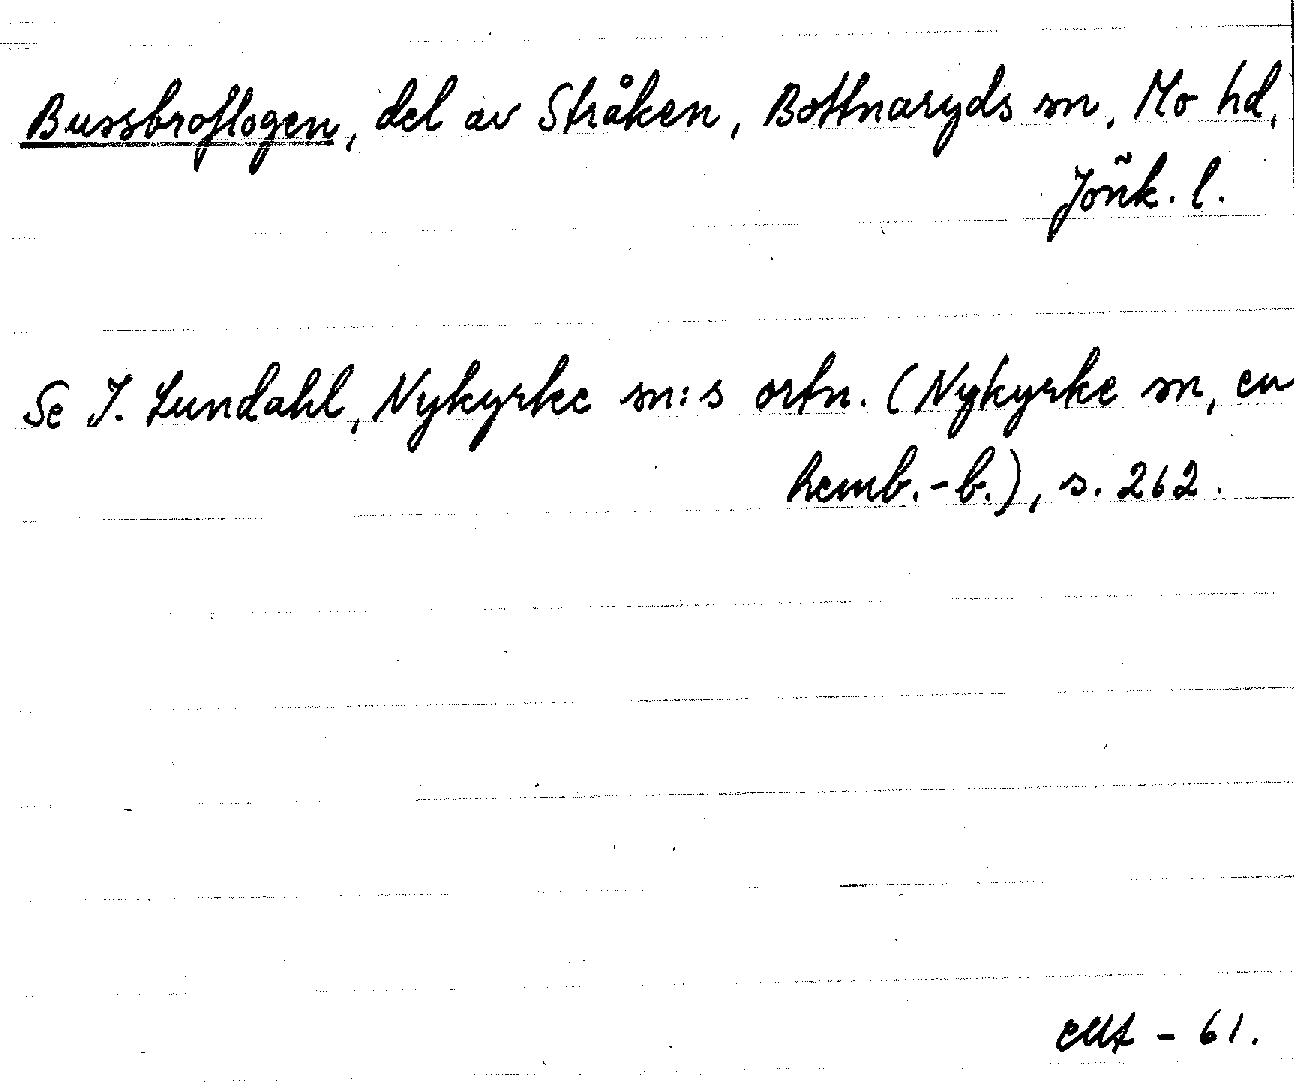 Bussbroflogen, del av Stråken, Bottnaryds sn, Mo hd,
Jönk. l.
Se I. Lundahl, Nykyrke sn:s ortn. (Nykyrke sn, en
hemb.-b.), s. 262.
- 61.